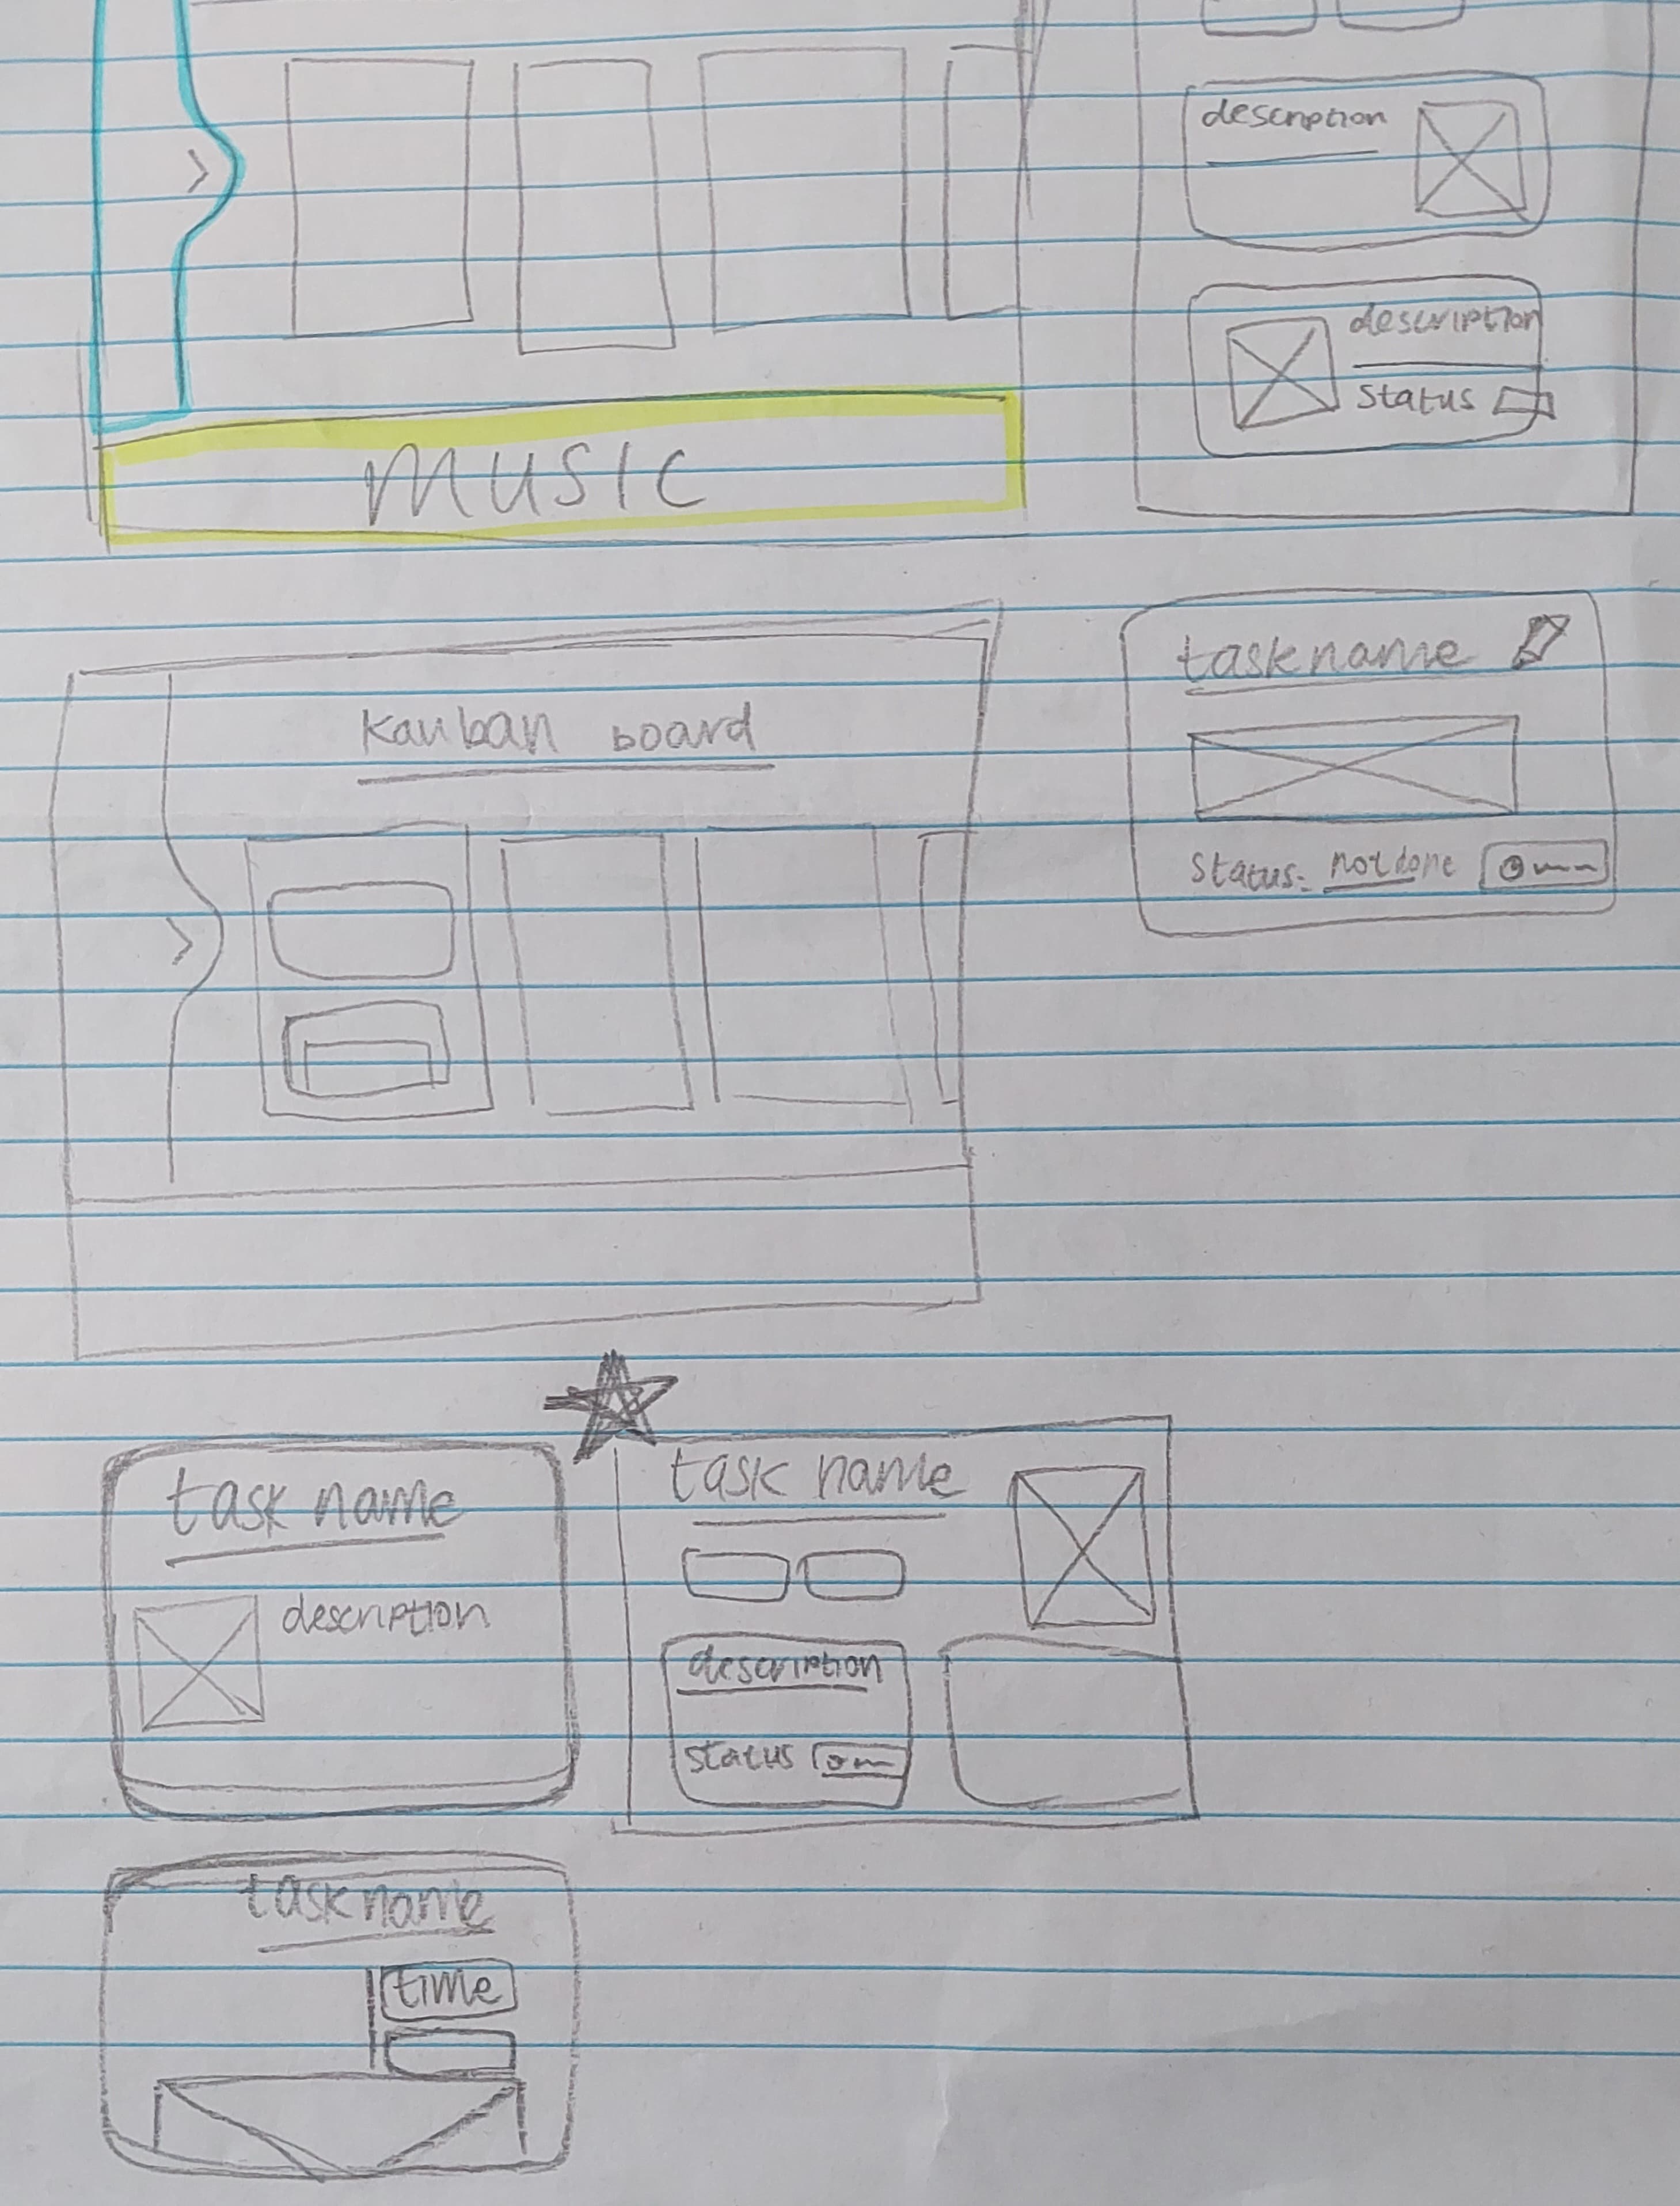 description
description
status
MUSIC
Kanban board
task name
Status: not done
task name
description
task name
description
status
task name
time